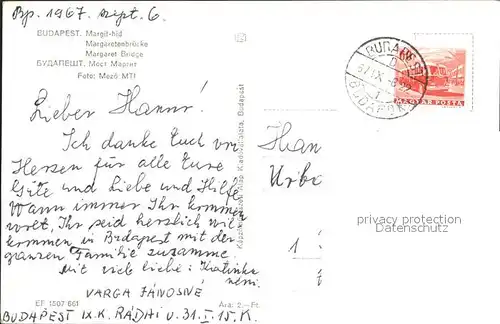 Bp. 1967. szept. 6.
BUDAPEST. Margit-híd
Margaretenbrücke
Margaret Bridge
БУДАПЕШТ. Мост Маргит
Foto: Mező MTI
Lieber Hanns!
Ich danke Euch
Herzen für alle Eure
Güte und Liebe und Hilfe
Wann immer Ihr kommen
Ihr seid herzlich
kommen in Budapest mit der
ganzen Familie zusamme.
Mit viel liebe: Katinka
néni.
VARGA JÁNOSNÉ
BUDAPEST IX.K. RÁDAI u. 31. I. 15. K.
EF 1507 661
Ára: 2.- Ft.
Budapest
BUDAPEST
MAGYAR POSTA
Han
Urb
1
privacy protection
Datenschutz